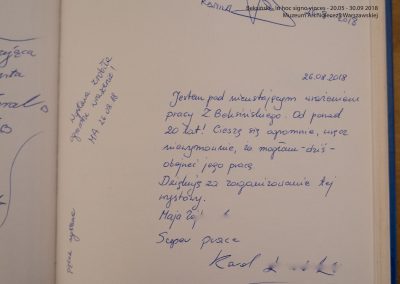 Beksiński. In hoc signo vinces - 20.05 - 30.09 2018
Muzeum Archidiecezji Warszawskiej
2018
26.08.2018
Jestem pod nieustającym wrażeniem
pracy Z Beksińskiego. Od ponad
20 lat! Cieszę się ogromnie, wręcz
niewymownie, że mogłam - dziś -
obejrzeć jego prace
Dziękuję za zorganizowanie tej
wystawy.
Maja
Super prace
Karol
Wystawa zrobiła
wrażenie!
MA 26.08.18